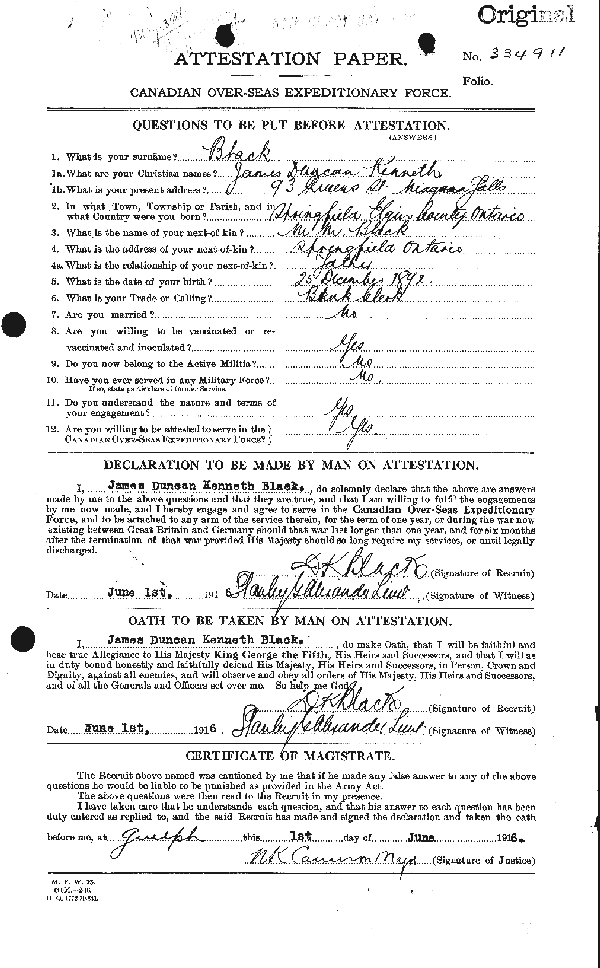 Original
ATTESTATION PAPER.
No. 334911
Folio.
CANADIAN OVER-SEAS EXPEDITIONARY FORCE.
QUESTIONS TO BE PUT BEFORE ATTESTATION.
(ANSWERS)
1. What is your surname? Black
1a. What are your Christian names? James Duncan Kenneth
1b. What is your present address? 93 Queens St. Niagara Falls
2. In what Town, Township or Parish, and in
what Country were you born? Springfield, Elgin County Ontario
3. What is the name of your next-of-kin? Black
4. What is the address of your next-of-kin? Springfield Ontario
4a. What is the relationship of your next-of-kin? Father
5. What is the date of your birth? 25 December
6. What is your Trade or Calling? Bank Clerk
7. Are you married? No
8. Are you willing to be vaccinated or re-
vaccinated and inoculated? Yes
9. Do you now belong to the Active Militia? No
10. Have you ever served in any Military Force? No.
If so, state particulars of former Service.
11. Do you understand the nature and terms of
your engagement? Yes.
12. Are you willing to be attested to serve in the
CANADIAN OVER-SEAS EXPEDITIONARY FORCE? Yes.
DECLARATION TO BE MADE BY MAN ON ATTESTATION.
I, James Duncan Kenneth Black., do solemnly declare that the above are answers
made by me to the above questions and that they are true, and that I am willing to fulfil the engagements
by me now made, and I hereby engage and agree to serve in the Canadian Over-Seas Expeditionary
Force, and to be attached to any arm of the service therein, for the term of one year, or during the war now
existing between Great Britain and Germany should that war last longer than one year, and for six months
after the termination of that war provided His Majesty should so long require my services, or until legally
discharged.
JDK Black (Signature of Recruit)
Date June 1st. 1916 Stanley G Alexander Lieut (Signature of Witness)
OATH TO BE TAKEN BY MAN ON ATTESTATION.
I, James Duncan Kenneth Black., do make Oath, that I will be faithful and
bear true Allegiance to His Majesty King George the Fifth, His Heirs and Successors, and that I will as
in duty bound honestly and faithfully defend His Majesty, His Heirs and Successors, in Person, Crown and
Dignity, against all enemies, and will observe and obey all orders of His Majesty, His Heirs and Successors,
and of all the Generals and Officers set over me. So help me God.
JDK Black (Signature of Recruit)
Date June 1st. 1916 Stanley G Alexander Lieut (Signature of Witness)
CERTIFICATE OF MAGISTRATE.
The Recruit above named was cautioned by me that if he made any false answer to any of the above
questions he would be liable to be punished as provided in the Army Act.
The above questions were then read to the Recruit in my presence.
I have taken care that he understands each question, and that his answer to each question has been
duly entered as replied to, and the said Recruit has made and signed the declaration and taken the oath
before me, at Guelph this 1st day of June 1916.
NK Cameron Maj (Signature of Justice)
M. F. W. 23.